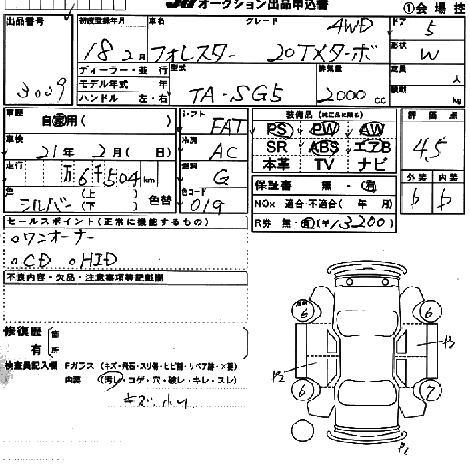 オークション出品申込書 ①会場控
出品番号 初度登録年月 車名 グレード ドア
3009 18 2月 フォレスター 20TXターボ 4WD 5
ディーラー・並行 型式 排気量 形状 W
モデル年式 年 TA-SG5 2000 cc 定員 人
ハンドル 左・右 積載 kg
車歴 自家用( ) シフト FAT 装備品 評価点
PS PW AW
車検 21年 2月(日) 冷房 AC SR ABS エアB 4.5
本革 TV ナビ
走行 万6千504km 燃料 G 外装 内装
色 シルバー (上) (下) 色替 色コード 019 保証書 無・有 b b
NOx 適合・不適合( 年 月)
R券 無・有(¥13200)
セールスポイント(正常に機能するもの)
○ワンオーナー
○CD ○HID
不具内容・欠品・注意事項等記載欄
修復歴 箇
有 所
検査員記入欄 Fガラス (キズ・飛石・スリ傷・ヒビ割・リペア跡・×要)
内装 (汚レ・コゲ・穴・破レ・キレ・スレ)
キズ小
6 6
P3
P2
6 7
P1